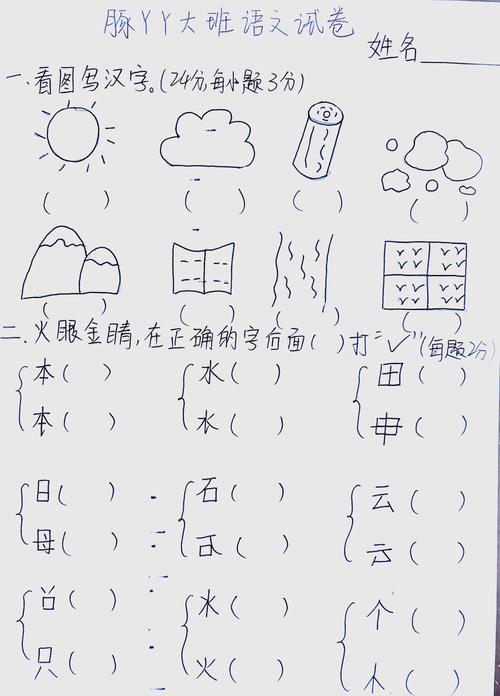 豚丫丫大班语文试卷
姓名
一.看图写汉字。(24分,每小题3分)
( ) ( ) ( ) ( )
( ) ( ) ( ) ( )
二.火眼金睛,在正确的字后面( )打“✓”(每题2分)
本( ) 水( ) 田( )
本( ) 水( ) 申( )
日( ) 石( ) 云( )
母( ) ( ) 云( )
( ) 水( ) 个( )
只( ) 火( ) ( )